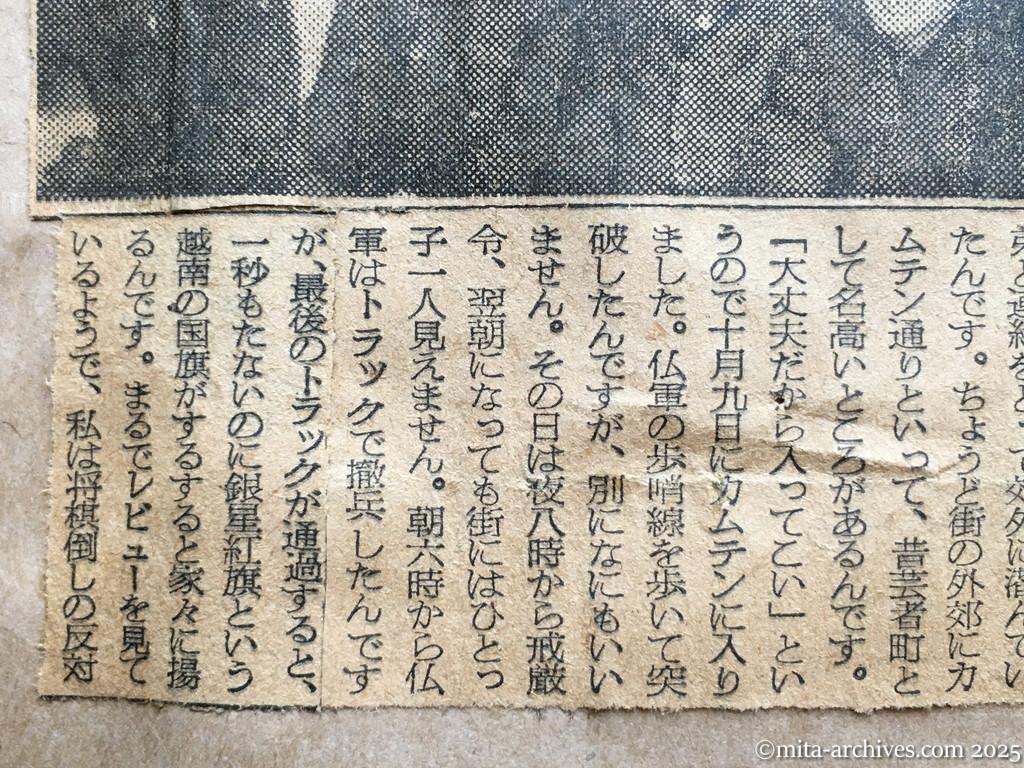 弟と連絡をとって郊外に潜んでい
たんです。ちょうど街の外郊にカ
ムテン通りといって、昔芸者町と
して名高いところがあるんです。
「大丈夫だから入ってこい」とい
うので十月九日にカムテンに入り
ました。仏軍の歩哨線を歩いて突
破したんですが、別になにもいい
ません。その日は夜八時から戒厳
令、翌朝になっても街にはひとっ
子一人見えません。朝六時から仏
軍はトラックで撤兵したんです
が、最後のトラックが通過すると、
一秒もたないのに銀星紅旗という
越南の国旗がするすると家々に揚
るんです。まるでレビューを見て
いるようで、私は将棋倒しの反対
©mita-archives.com 2025